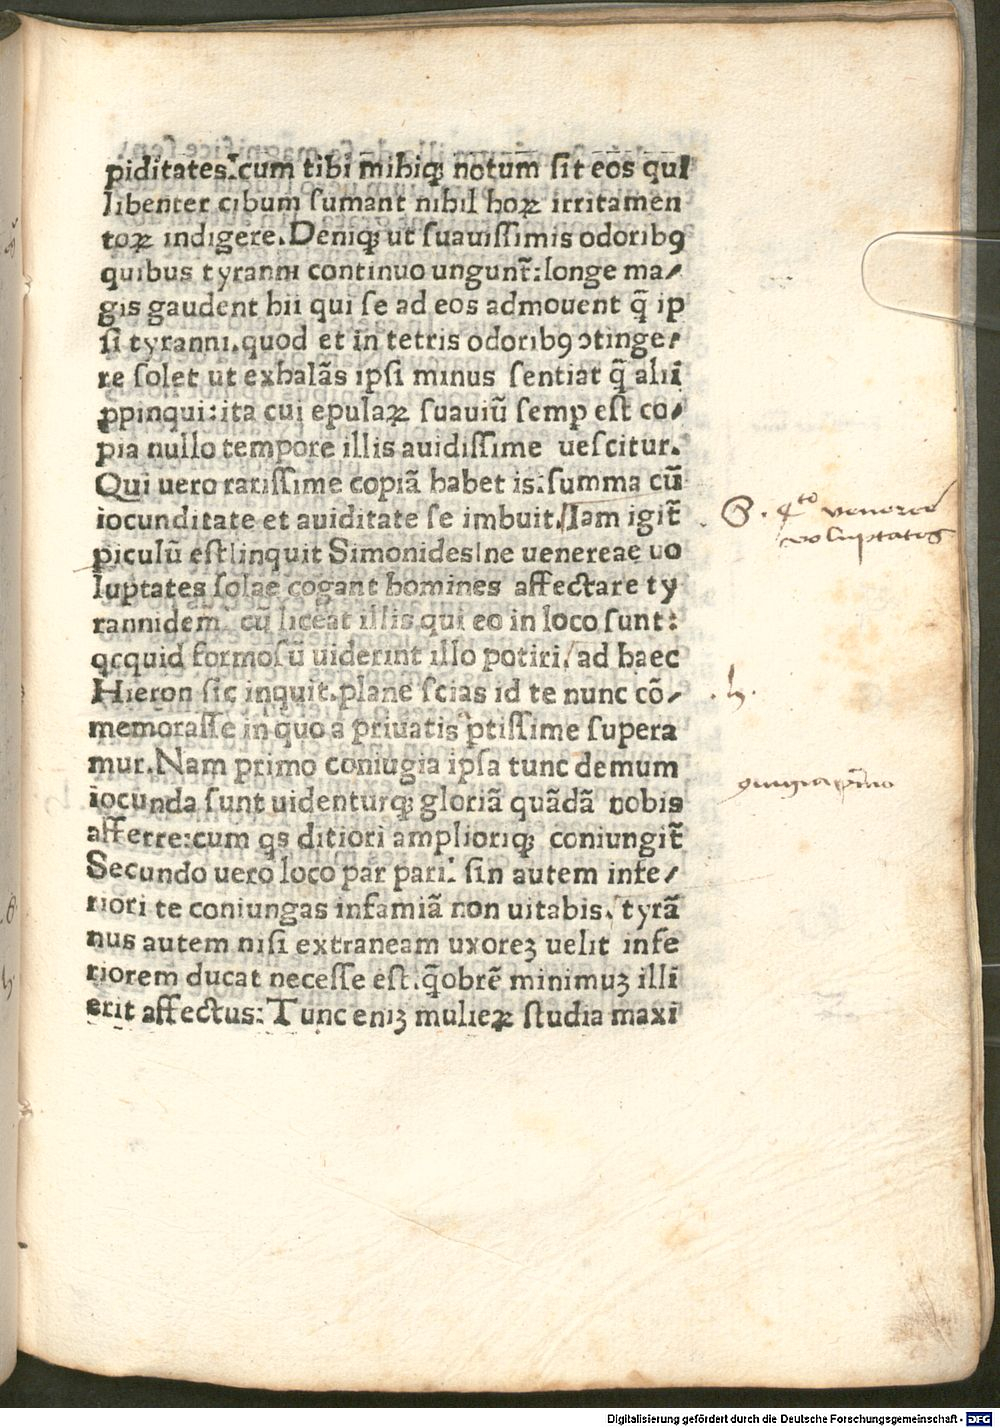 piditates.cum tibi m̄ihiqꝫ notum sit eos qui
libenter cibum sumant nihil hoꝝ irritamen
toꝝ indigere.Deniqꝫ ut suauissimis odoribꝰ
quibus tyranni continuo ungunt̄:longe ma⸗
gis gaudent hii qui se ad eos admouent q̄ ip
si tyranni.quod et in tetris odoribꝰ ↄtinge⸗
re solet ut exhalās ipsi minus sentiat q̄ alii
ꝓpinqui:ita cui epulaꝝ suauiū semꝑ est co⸗
pia nullo tempore illis auidissime uescitur.
Qui uero rarissime copiā habet is:summa cū
iocunditate et auiditate se imbuit./Iam igit̄
piculū est inquit Simonides/ne uenereae uo
luptates solae cogant homines affectare ty
rannidem cū liceat illis qui eo in loco sunt:
qcquid formosū uiderint illo potiri./ad haec
Hieron sic inquit.plane scias id te nunc cō⸗
memorasse in quo a priuatis ptissime supera
mur.Nam primo coniugia ipsa tunc demum
iocunda sunt uidenturqꝫ gloriā quādā nobis
afferre:cum qs ditiori amplioriqꝫ coniungit̄
Secundo uero loco par pari. sin autem infe⸗
riori te coniungas infamiā non uitabis. tyrā
nus autem nisi extraneam uxoreꝫ uelit infe
riorem ducat necesse est.q̄obrē minimuꝫ illi
erit affectus: Tunc eniꝫ mulieꝝ studia maxi
S. 4to venereę
voluptates
.h.
ↄiugia p̄mo
Digitalisierung gefördert durch die Deutsche Forschungsgemeinschaft - DFG